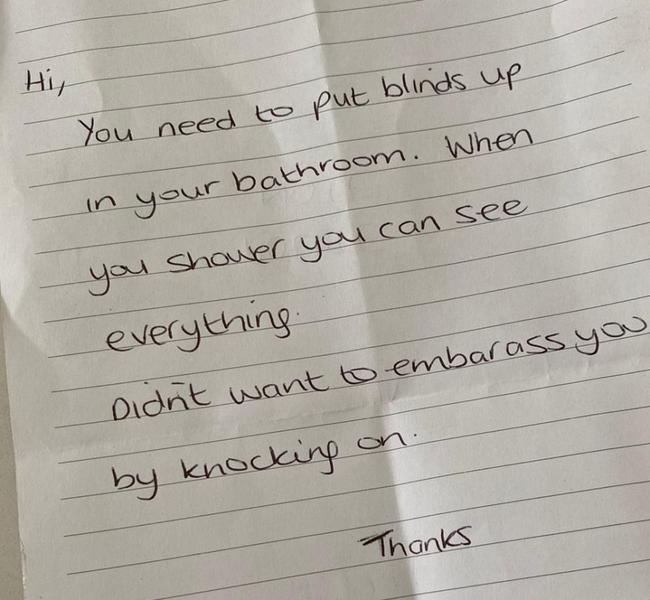 Hi,
You need to put blinds up
in your bathroom. When
you shower you can see
everything.
Didn't want to embarass you
by knocking on.
Thanks